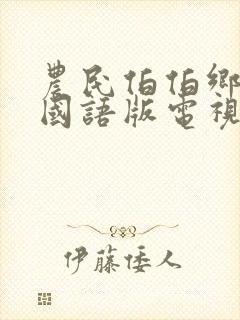 農民伯伯鄉
國語版電視
伊藤倭人